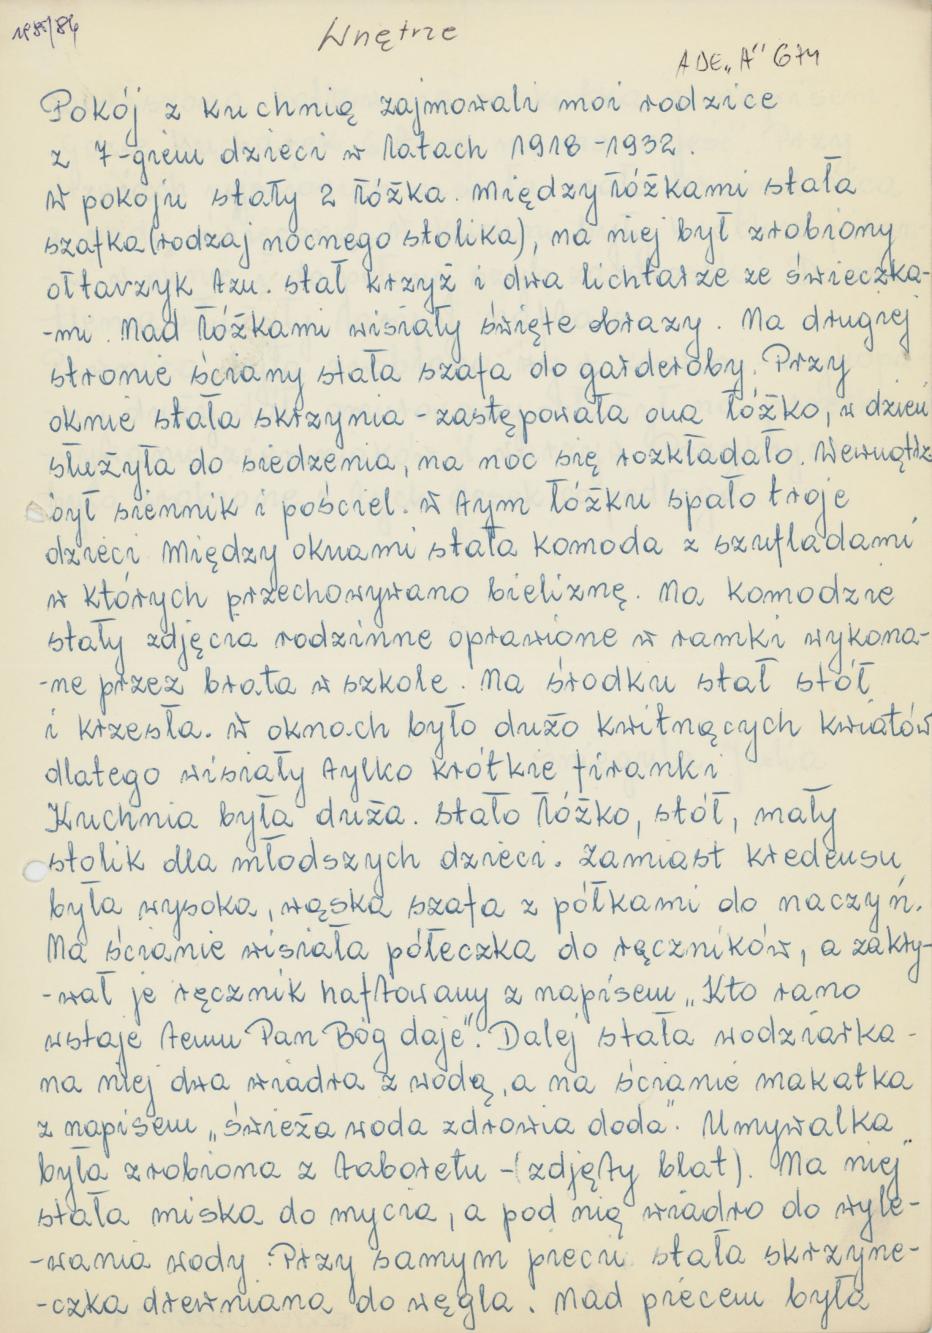 198/84
Wnętrze
ADE „A" 674
Pokój z kuchnią zajmowali moi rodzice
z 7-giem dzieci w latach 1918-1932.
W pokoju stały 2 łóżka. Między łóżkami stała
szafka (rodzaj nocnego stolika), na niej był zrobiony
ołtarzyk tzn. stał krzyż i dwa lichtarze ze świeczka-
-mi. Nad łóżkami wisiały święte obrazy. Na drugiej
stronie ściany stała szafa do garderoby. Przy
oknie stała skrzynia - zastępowała ona łóżko, w dzień
służyła do siedzenia, na noc się rozkładało. Wewnątrz
był siennik i pościel. W tym łóżku spało troje
dzieci Między oknami stała komoda z szufladami
w których przechowywano bieliznę. Na komodzie
stały zdjęcia rodzinne oprawione w ramki wykona-
-ne przez brata w szkole. Na środku stał stół
i krzesła. W oknach było dużo kwitnących kwiatów
dlatego wisiały tylko krótkie firanki
Kuchnia była duża. Stało łóżko, stół, mały
stolik dla młodszych dzieci. Zamiast kredensu
była wysoka, wąska szafa z półkami do naczyń.
Na ścianie wisiała półeczka do ręczników, a zakry-
-wał je ręcznik haftowany z napisem „Kto rano
wstaje temu Pan Bóg daje". Dalej stała wodziarka -
na niej dwa wiadra z wodą, a na ścianie makatka
z napisem „Świeża woda zdrowia doda". Umywalka
była zrobiona z taboretu -(zdjęty blat). Na niej
stała miska do mycia, a pod nią wiadro do wyle-
-wania wody. Przy samym piecu stała skrzyne-
-czka drewniana do węgla. Nad piecem była